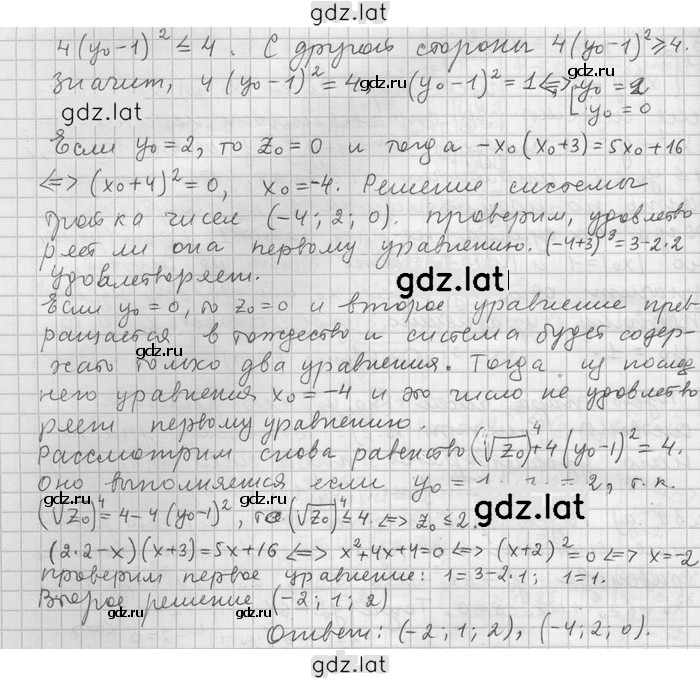 gdz.lat
4(y₀-1)² ≤ 4. С другой стороны 4(y₀-1)² ≥ 4.
Значит, 4(y₀-1)² = 4, (y₀-1)² = 1 <=> [y₀ = 2
y₀ = 0
gdz.lat
gdz.lat
Если y₀=2, то z₀=0 и тогда -x₀(x₀+3)=5x₀+16
<=> (x₀+4)²=0, x₀=-4. Решение системы
тройка чисел (-4; 2; 0). проверим, удовлетво
gdz.lat
gdz.lat
ряет ли она первому уравнению. (-4+3)³=3-2·2
удовлетворяет.
gdz.lat
Если y₀=0, то z₀=0 и второе уравнение прев
ращается в тождество и система будет содер-
gdz.lat
жать только два уравнения. Тогда из послед
него уравнения x₀=-4 и это число не удовлетво
gdz.lat
ряет первому уравнению.
gdz.lat
Рассмотрим снова равенство (√z₀)⁴+4(y₀-1)²=4.
Оно выполняется если y₀ = 1, = 2, т.к.
gdz.lat
gdz.lat
(√z₀)⁴=4-4(y₀-1)², то (√z₀)⁴ ≤ 4 <=> z₀ ≤ 2.
(2·2-x)(x+3)=5x+16 <=> x²+4x+4=0 <=> (x+2)²=0 <=> x=-2
gdz.lat
проверим первое уравнение: 1=3-2·1; 1=1.
gdz.lat
Второе решение (-2; 1; 2)
gdz.lat
Ответ: (-2; 1; 2), (-4; 2; 0).
gdz.lat